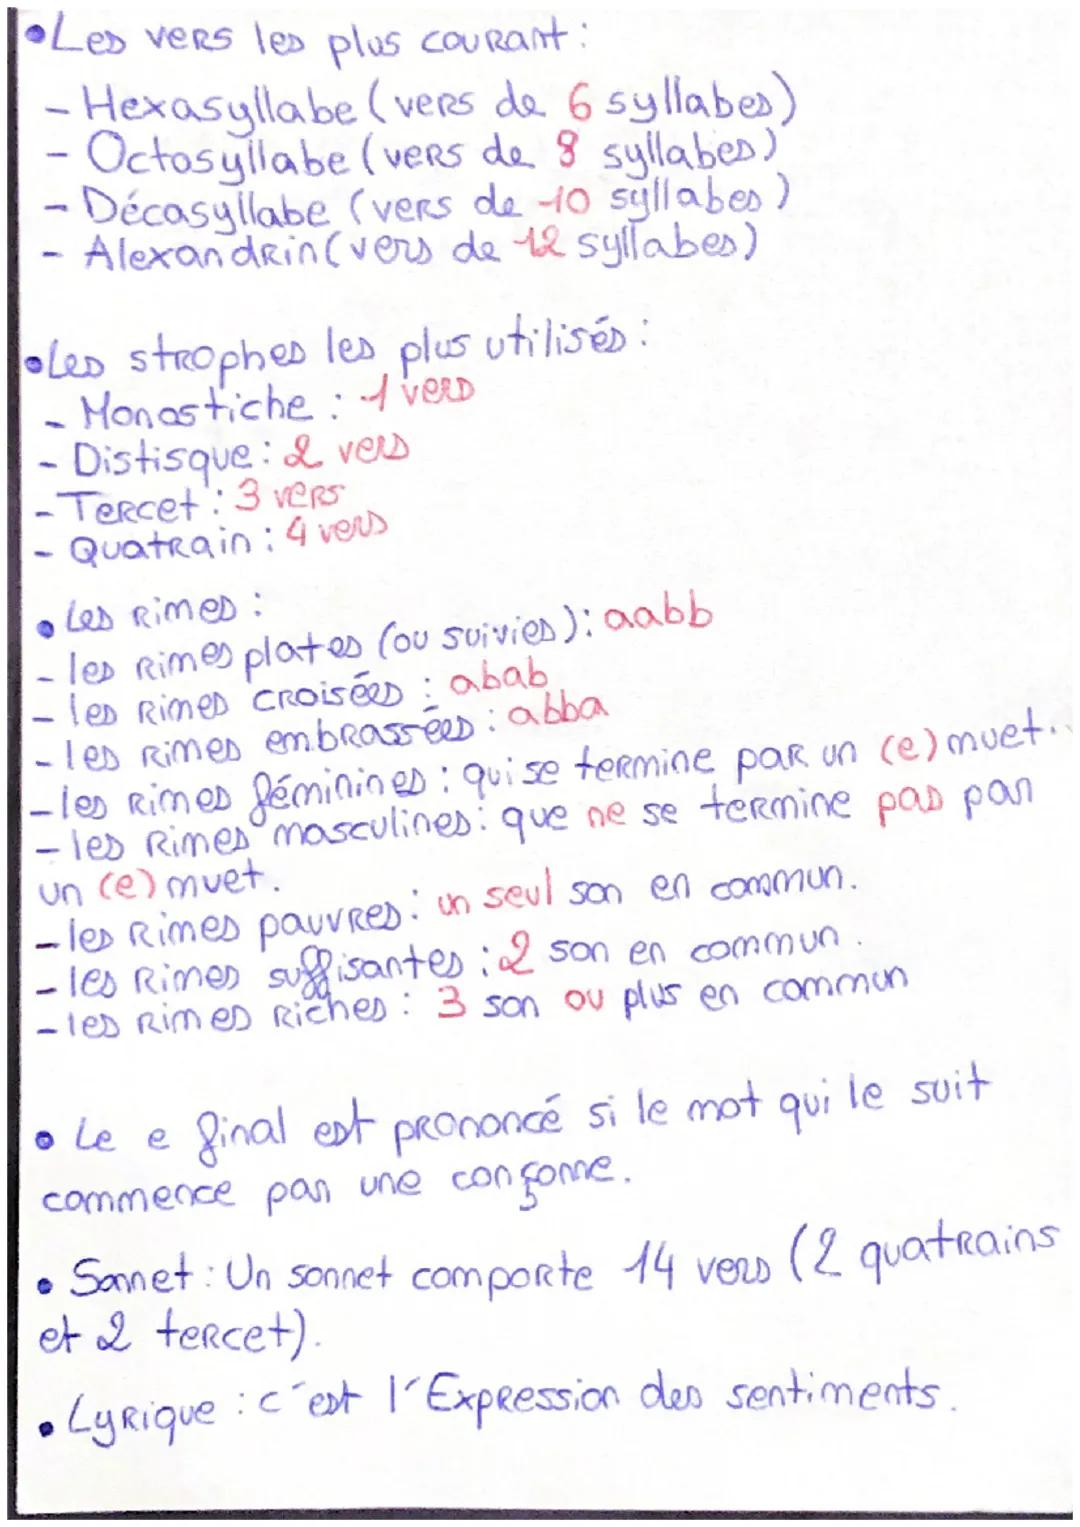 •Les vers les plus courant :
- Hexasyllabe (vers de 6 syllabes)
- Octosyllabe (vers de 8 syllabes)
- Décasyllabe (vers de 10 syllabes)
- Alexandrin (vers de 12 syllabes)
•Les strophes les plus utilisés :
- Monostiche : 1 vers
- Distisque : 2 vers
- Tercet : 3 vers
- Quatrain : 4 vers
• Les Rimes :
- les Rimes plates (ou suivies) : aabb
- les Rimes croisées : abab
- les Rimes embrassées : abba
- les Rimes féminines : qui se termine par un (e) muet.
- les Rimes masculines : que ne se termine pas par
un (e) muet.
- les Rimes pauvres : un seul son en commun.
- les Rimes suffisantes : 2 son en commun.
- les Rimes Riches : 3 son ou plus en commun
• Le e final est prononcé si le mot qui le suit
commence par une conçonne.
• Sonnet : Un sonnet comporte 14 vers (2 quatrains
et 2 tercet).
• Lyrique : c'est l'Expression des sentiments.